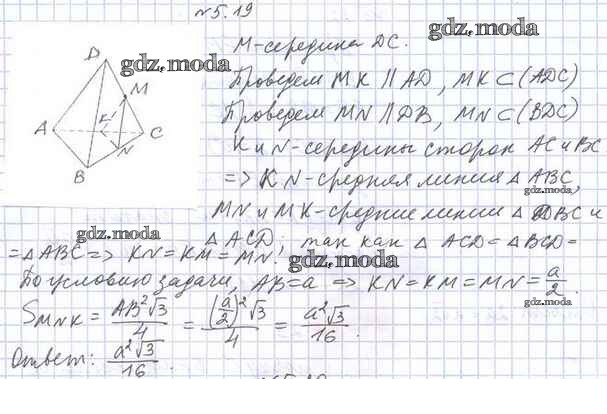 №5.19
gdz.moda
M-середина DC.
gdz.moda
Проведем MK || AD, MK ⊂ (ADC)
Проведем MN || DB, MN ⊂ (BDC)
K и N-середины сторон AC и BC
=> KN-средняя линия △ ABC,
gdz.moda
D
M
A
K
C
N
B
gdz.moda
MN и MK-средние линии △ DBC и
△ ACD; так как △ ACD = △ BCD =
= △ ABC => KN = KM = MN.
По условию задачи, AB = a => KN = KM = MN = a/2.
gdz.moda
S_MNK = AB²√3/4 = (a/2)²√3/4 = a²√3/16.
Ответ: a²√3/16.